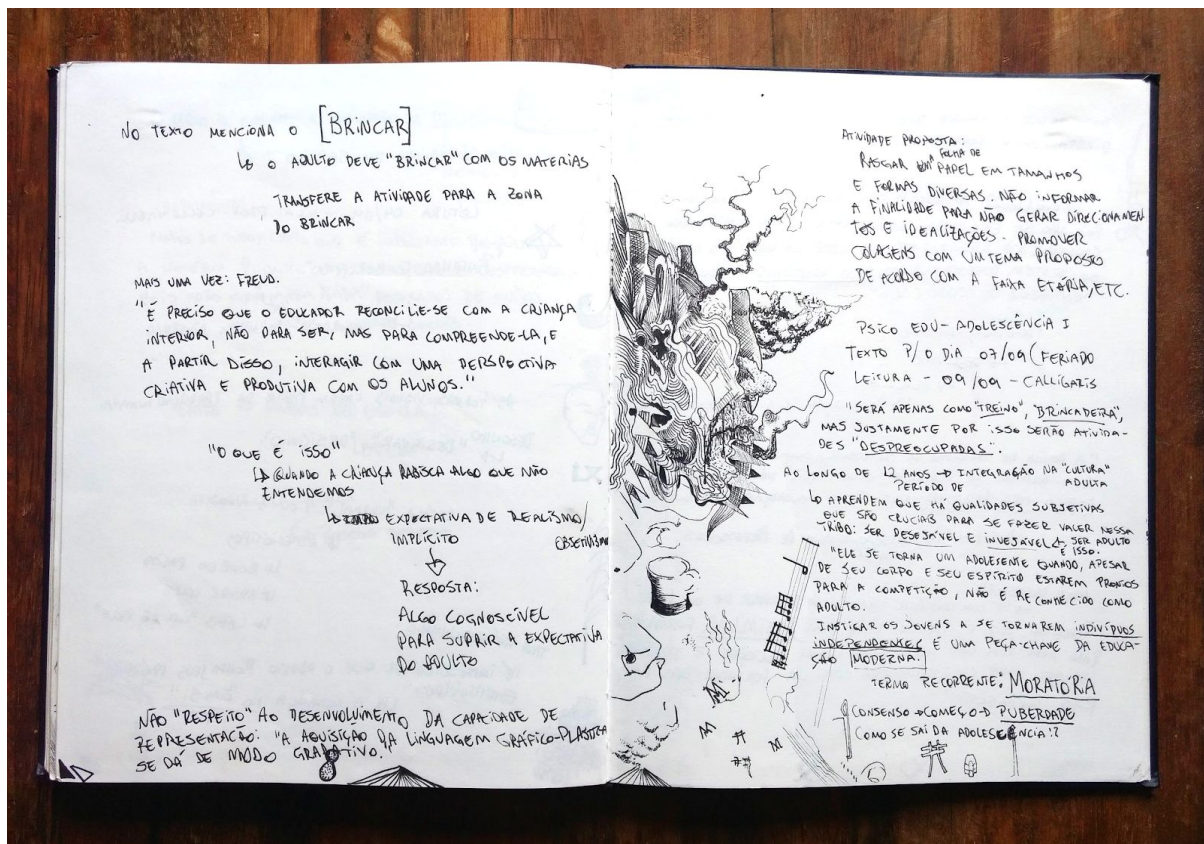 NO TEXTO MENCIONA O [BRINCAR]
↳ O ADULTO DEVE "BRINCAR" COM OS MATERIAS
TRANSFERE A ATIVIDADE PARA A ZONA
DO BRINCAR
MAIS UMA VEZ: FREUD.
"É PRECISO QUE O EDUCADOR RECONCILIE-SE COM A CRIANÇA
INTERIOR, NÃO PARA SER, MAS PARA COMPREENDE-LA, E
A PARTIR DISSO, INTERAGIR COM UMA PERSPECTIVA
CRIATIVA E PRODUTIVA COM OS ALUNOS."
"O QUE É ISSO"
↳ QUANDO A CRIANÇA RABISCA ALGO QUE NÃO
ENTENDEMOS
↳ EXPECTATIVA DE REALISMO/
IMPLÍCITO
↓
RESPOSTA:
ALGO COGNOSCÍVEL
PARA SUPRIR A EXPECTATIVA
DO ADULTO
NÃO "RESPEITO" AO DESENVOLVIMENTO DA CAPACIDADE DE
REPRESENTAÇÃO: "A AQUISIÇÃO DA LINGUAGEM GRÁFICO-PLASTICA
SE DÁ DE MODO GRADATIVO.
ATIVIDADE PROPOSTA:
RASGAR UMA FOLHA DE PAPEL EM TAMANHOS
E FORMAS DIVERSAS. NÃO INFORMAR
A FINALIDADE PARA NÃO GERAR DIRECIONAMEN
TOS E IDEALIZAÇÕES. PROMOVER
COLAGENS COM UM TEMA PROPOSTO
DE ACORDO COM A FAIXA ETÁRIA, ETC.
PSICO EDU - ADOLESCÊNCIA I
TEXTO P/ O DIA 07/09 (FERIADO
LEITURA - 09/09 - CALLIGARIS
"SERÁ APENAS COMO "TREINO", "BRINCADEIRA",
MAS JUSTAMENTE POR ISSO SERÃO ATIVIDA-
DES "DESPREOCUPADAS".
AO LONGO DE 12 ANOS → INTEGRAÇÃO NA "CULTURA"
PERÍODO DE ADULTA
↳ APRENDEM QUE HÁ QUALIDADES SUBJETIVAS
QUE SÃO CRUCIAIS PARA SE FAZER VALER NESSA
TRIBO: SER DESEJÁVEL E INVEJÁVEL ↳ SER ADULTO
É ISSO.
"ELE SE TORNA UM ADOLESENTE QUANDO, APESAR
DE SEU CORPO E SEU ESPÍRITO ESTAREM PRONTOS
PARA A COMPETIÇÃO, NÃO É RECONHECIDO COMO
ADULTO.
INSTIGAR OS JOVENS A SE TORNAREM INDIVÍDUOS
INDEPENDENTES É UMA PEÇA-CHAVE DA EDUCA-
ÇÃO MODERNA.
TERMO RECORRENTE: MORATÓRIA
CONSENSO → COMEÇO → PUBERDADE
COMO SE SAÍ DA ADOLESCÊNCIA!?